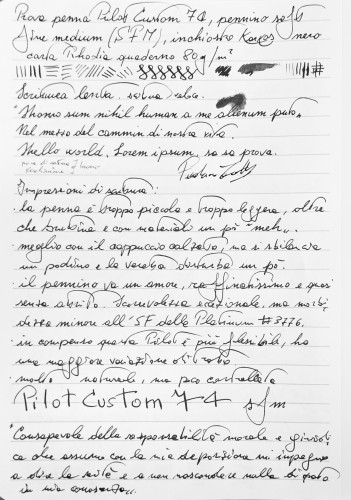 Prova penna Pilot Custom 74, pennino soft
fine medium (SFM), inchiostro Kaweco nero
carta Rhodia quaderno 80 g/m²
Scrittura lenta. veloce.
"Homo sum nihil human a me alienum puto"
Nel mezzo del cammin di nostra vita.
Hello world. Lorem ipsum, sa sa prova.
Impressioni di scrittura:
· la penna è troppo piccola e troppo leggera, oltre
che bruttina e con materiali un pò "meh".
· meglio con il cappuccio calzato, ma si sbilancia
un pochino e la vedetta disturba un pò.
· il pennino va un amore, raffinatissimo e quasi
senza attrito. Scorrevolezza eccezionale, ma morbi-
dezza minore all'SF della Platinum #3776.
· in compenso questa Pilot è più flessibile, ha
una maggiore variazione di tratto
molto naturale, ma poco controllata
Pilot Custom 74 sfm
"Consapevole della responsabilità morale e giuridi-
ca che assumo con la mia deposizione mi impegno
a dire la verità e a non nascondere nulla di quanto
in mia conoscenza".